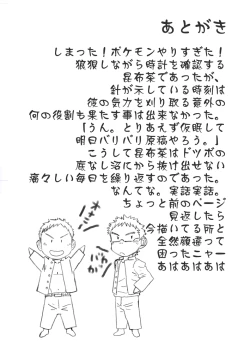 あとがき
しまった！ポケモンやりすぎた！
狼狽しながら時計を確認する
昆布茶であったが、
針が示している時刻は
彼の気力を刈り取る意外の
何の役割も果たす事は出来なかった。
「うん。とりあえず仮眠して
明日バリバリ原稿やろう。」
こうして昆布茶はドツボの
底なし沼にから抜け出せない
痛々しい毎日を繰り返すのであった。
なんてな。実話実話。
ちょっと前のページ
見返したら
今描いてる所と
全然顔違って
困ったニャー
あはあはあは
オキニ！
バカ！